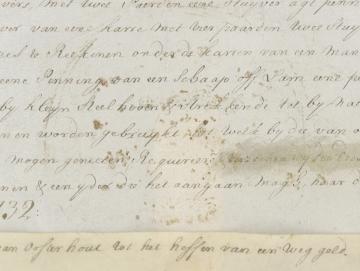 met twee Paerden eene Stuyver agt penn
ver van eene Karre met vier paarden twee Stuy
te Reekenen onder de Karren van een Man
eene Penning van een Schaap off Lam eene p
by kleyn Steelhoven strekkende tot by
nen worden gebruykt tot welk by die van
mogen genieten Requireer
nen & een yder die het aengaan mag, haar
132:
van Oosterhout tot het heffen van een Weg geld.